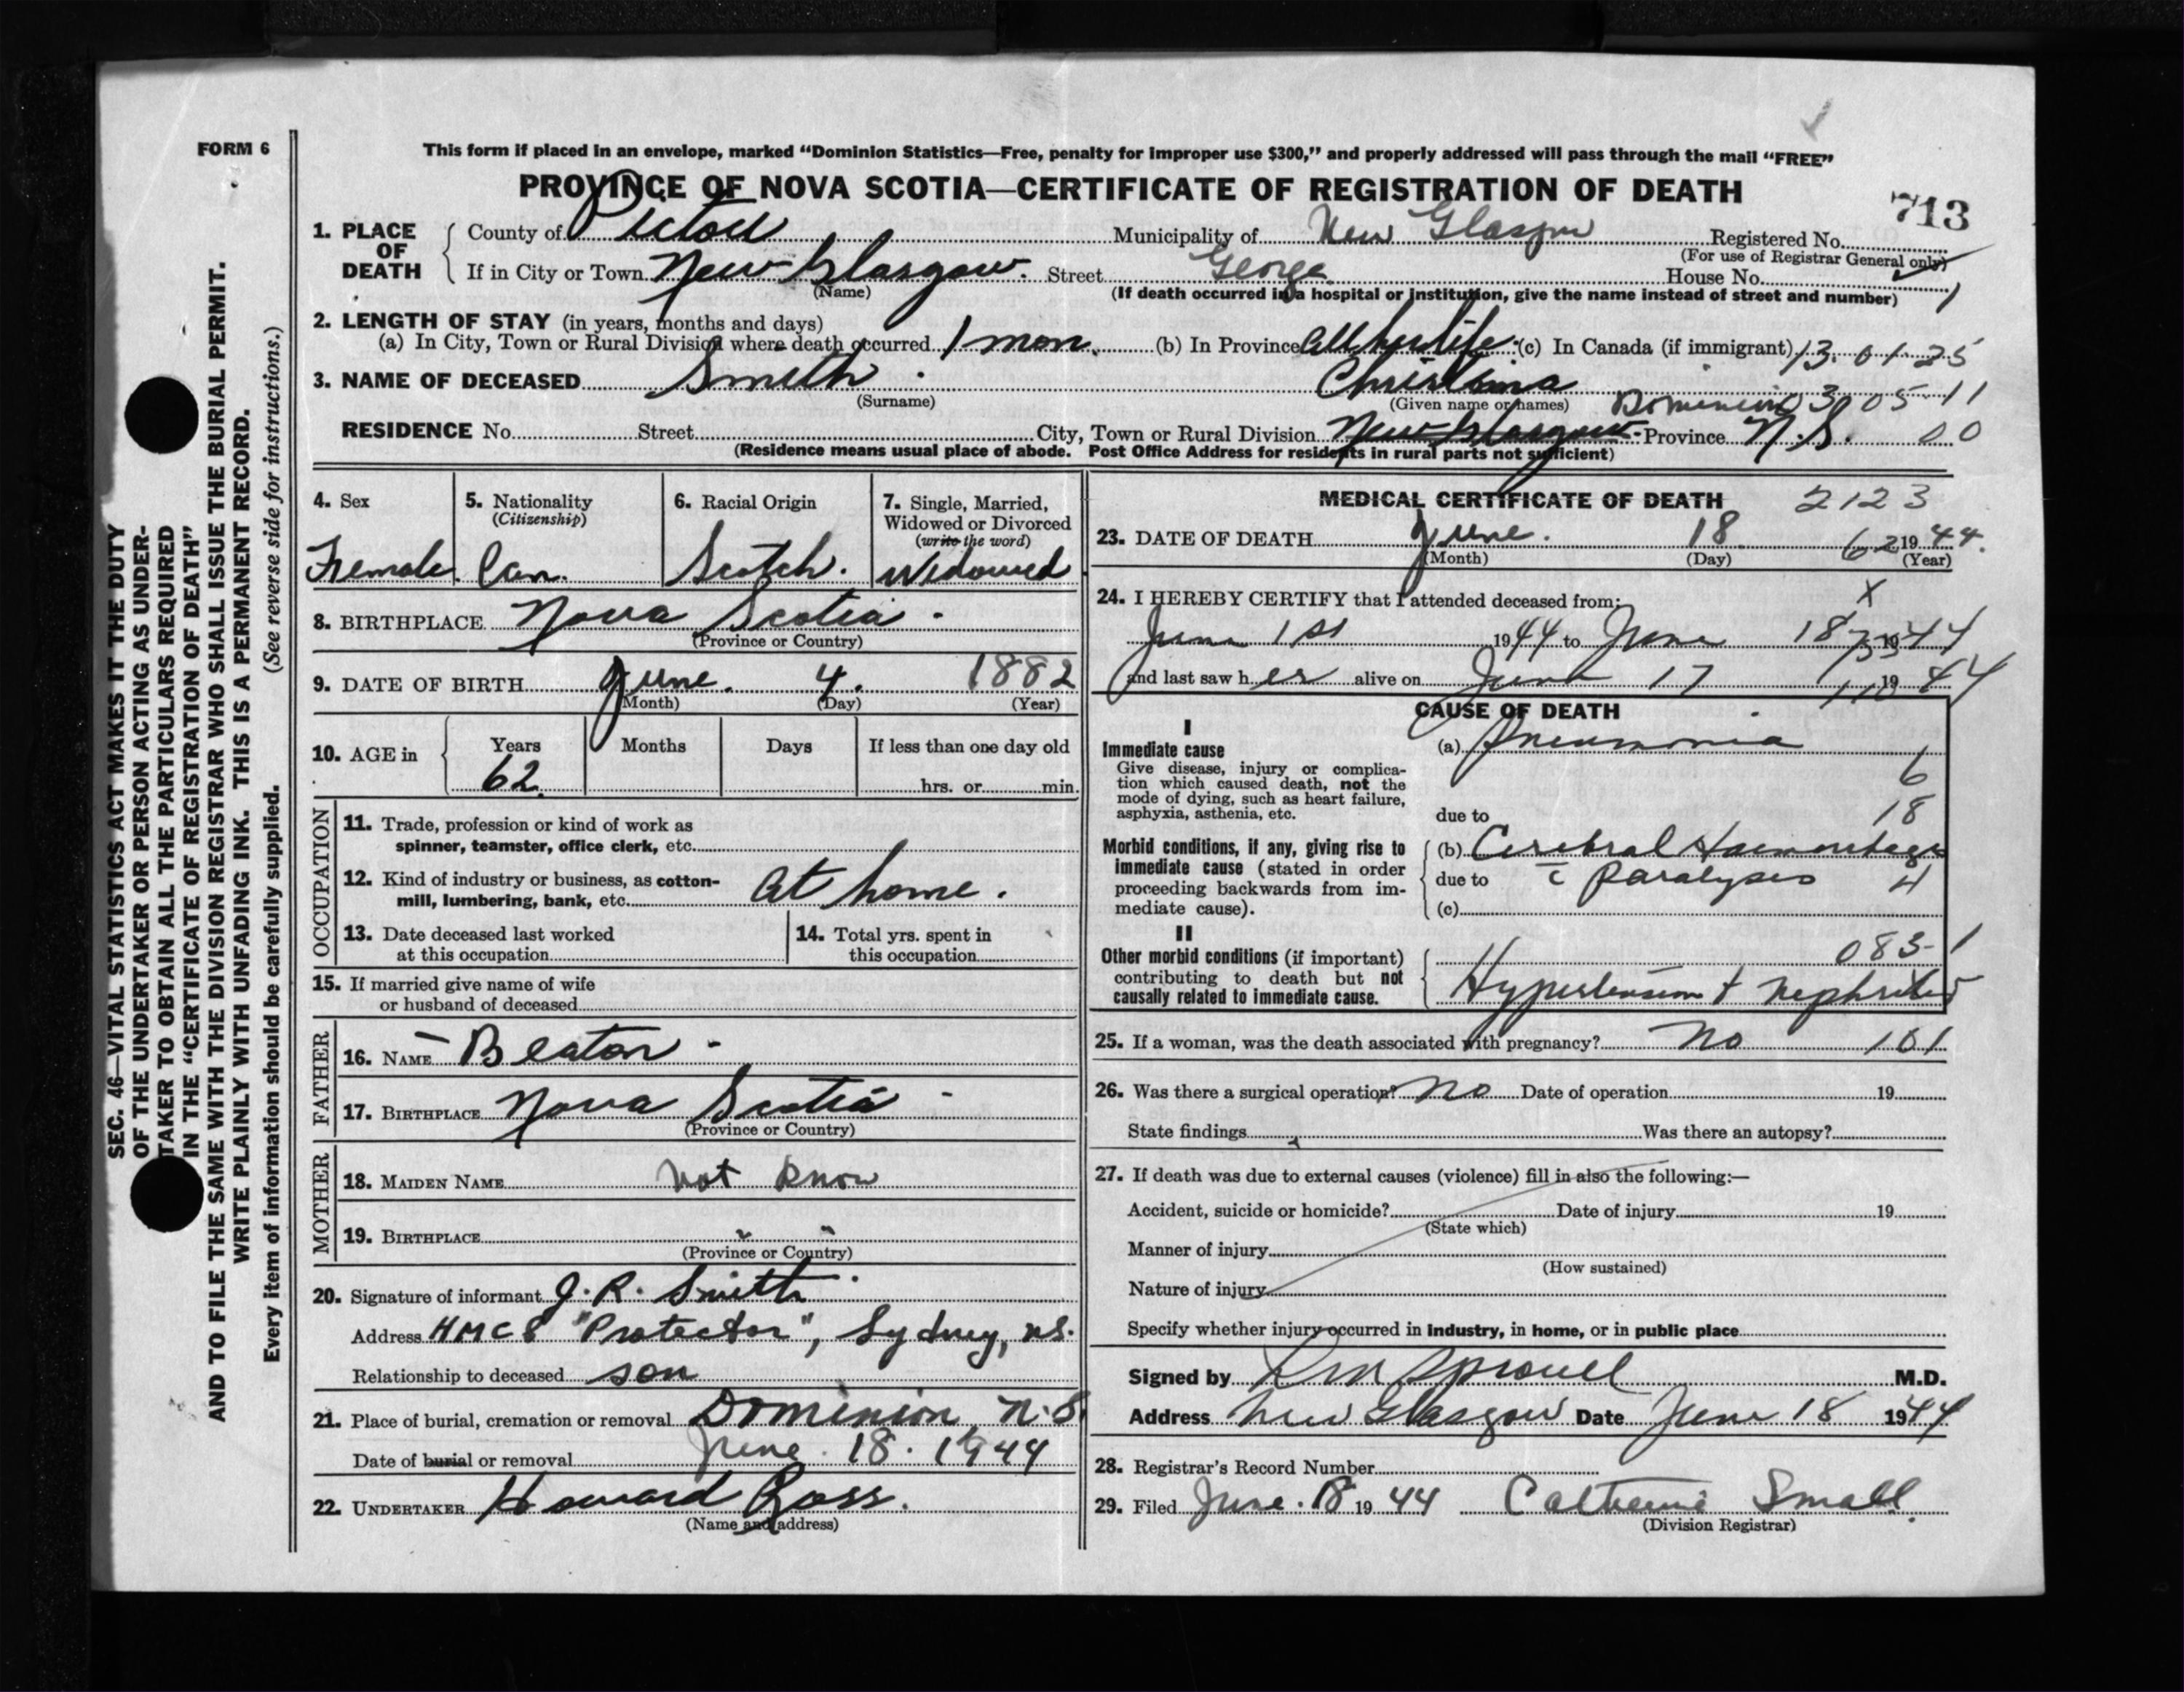 FORM 6
This form if placed in an envelope, marked “Dominion Statistics—Free, penalty for improper use $300,” and properly addressed will pass through the mail “FREE”
PROVINCE OF NOVA SCOTIA—CERTIFICATE OF REGISTRATION OF DEATH
713
1. PLACE OF DEATH
County of Pictou Municipality of New Glasgow Registered No.
(For use of Registrar General only)
If in City or Town New Glasgow. Street George House No.
(Name) (If death occurred in a hospital or institution, give the name instead of street and number)
2. LENGTH OF STAY (in years, months and days)
(a) In City, Town or Rural Division where death occurred 1 mon. (b) In Province All her life (c) In Canada (if immigrant) 13 01 25
3. NAME OF DECEASED Smith Christina
(Surname) (Given name or names) Dominion 3 05 11
RESIDENCE No. Street City, Town or Rural Division New Glasgow Province N.S. 00
(Residence means usual place of abode. Post Office Address for residents in rural parts not sufficient)
4. Sex
Female
5. Nationality
(Citizenship)
Can.
6. Racial Origin
Scotch.
7. Single, Married,
Widowed or Divorced
(write the word)
Widowed
8. BIRTHPLACE Nova Scotia
(Province or Country)
9. DATE OF BIRTH June. 4. 1882
(Month) (Day) (Year)
10. AGE in Years Months Days If less than one day old
62 hrs. or min.
OCCUPATION
11. Trade, profession or kind of work as
spinner, teamster, office clerk, etc.
12. Kind of industry or business, as cotton-
mill, lumbering, bank, etc. At home.
13. Date deceased last worked
at this occupation
14. Total yrs. spent in
this occupation
15. If married give name of wife
or husband of deceased
FATHER
16. NAME — Beaton -
17. BIRTHPLACE Nova Scotia -
(Province or Country)
MOTHER
18. MAIDEN NAME not know
19. BIRTHPLACE " "
(Province or Country)
20. Signature of informant J. R. Smith
Address HMCS "Protector", Sydney, NS.
Relationship to deceased son
21. Place of burial, cremation or removal Dominion, N.S.
Date of burial or removal June 18. 1944
22. UNDERTAKER Howard Ross.
(Name and address)
MEDICAL CERTIFICATE OF DEATH 2123
23. DATE OF DEATH June. 18 62 1944.
(Month) (Day) (Year)
24. I HEREBY CERTIFY that I attended deceased from: X
June 1st 1944 to June 18 1944
and last saw her alive on June 17 1944
CAUSE OF DEATH
I
Immediate cause
Give disease, injury or complica-
tion which caused death, not the
mode of dying, such as heart failure,
asphyxia, asthenia, etc.
(a) Pneumonia
6
due to 18
Morbid conditions, if any, giving rise to
immediate cause (stated in order
proceeding backwards from im-
mediate cause).
(b) Cerebral Haemorrhage
due to c̄ Paralysis 4
(c)
II
Other morbid conditions (if important)
contributing to death but not
causally related to immediate cause.
083-1
Hypertension + Nephritis
25. If a woman, was the death associated with pregnancy? No 101
26. Was there a surgical operation? No Date of operation 19
State findings Was there an autopsy?
27. If death was due to external causes (violence) fill in also the following:—
Accident, suicide or homicide? Date of injury 19
(State which)
Manner of injury
(How sustained)
Nature of injury
Specify whether injury occurred in industry, in home, or in public place
Signed by Sproull M.D.
Address New Glasgow Date June 18 1944
28. Registrar's Record Number
29. Filed June. 18 1944 Catherine Small.
(Division Registrar)
SEC. 46—VITAL STATISTICS ACT MAKES IT THE DUTY
OF THE UNDERTAKER OR PERSON ACTING AS UNDER-
TAKER TO OBTAIN ALL THE PARTICULARS REQUIRED
IN THE “CERTIFICATE OF REGISTRATION OF DEATH”
AND TO FILE THE SAME WITH THE DIVISION REGISTRAR WHO SHALL ISSUE THE BURIAL PERMIT.
WRITE PLAINLY WITH UNFADING INK. THIS IS A PERMANENT RECORD.
Every item of information should be carefully supplied. (See reverse side for instructions.)